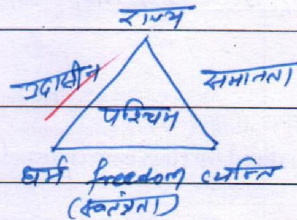 राज्य
उदासीन समानता
पश्चिम
धर्म freedom व्यक्ति
(स्वतंत्रता)